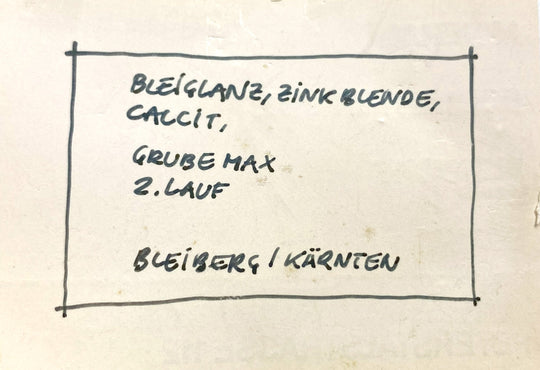 BLEIGLANZ, ZINKBLENDE,
CALCIT,
GRUBE MAX
2. LAUF
BLEIBERG / KÄRNTEN